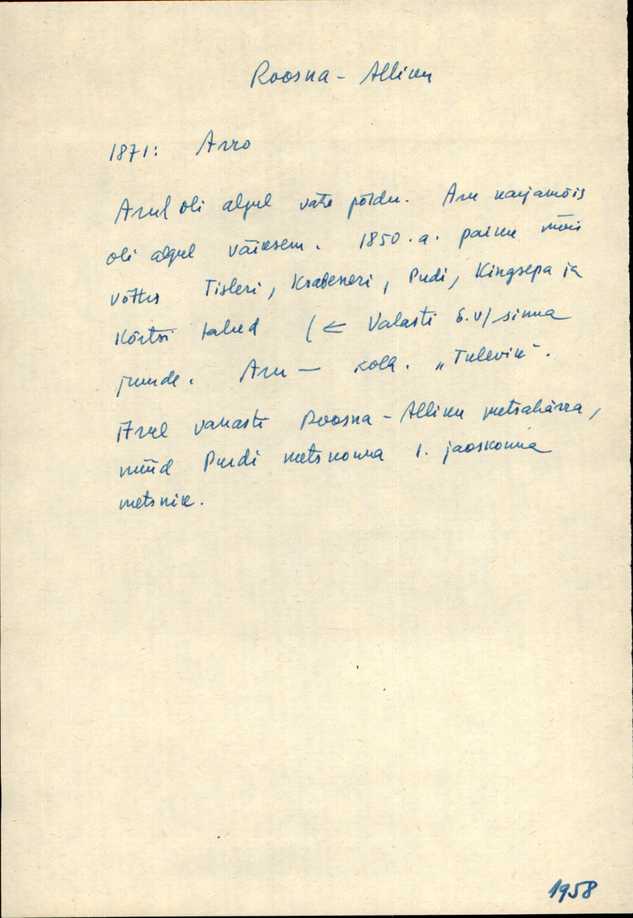 Roosna-Alliku
1871: Arro
Arul oli algul vähe põldu. Aru karjamõis
oli algul väiksem. 1850.a. paiku mõis
võttis Tisleri, Krabeneri, Pudi, Kingsepa ja
Kõrtsi talud (← Valasti s.v) sinna
juurde. Aru — kolh. „Tulevik".
Arul vanasti Roosna-Alliku metsahärra,
nüüd Purdi metskonna 1. jaoskonna
metsnik.
1958